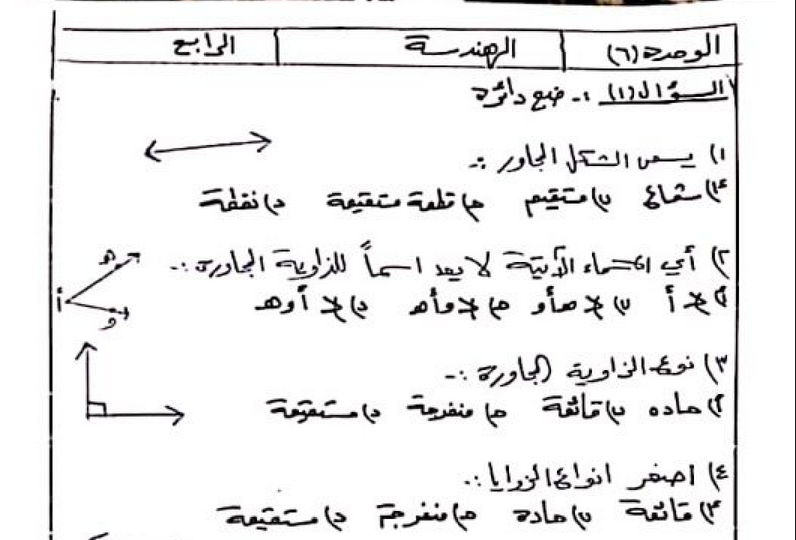 الوحدة (٦) الهندسة الرابع
السؤال (١) :- ضع دائرة
١) يسمى الشكل المجاور :-
أ) شعاع ب) مستقيم ج) قطعة مستقيمة د) نقطة
٢) أي الأسماء الآتية لا يعد اسماً للزاوية المجاورة :-
هـ
أ
و
أ) ∠ أ ب) ∠ هـ أ و ج) ∠ و أ هـ د) ∠ أ و هـ
٣) نوع الزاوية المجاورة :-
أ) حاده ب) قائمة ج) منفرجة د) مستقيمة
٤) أصغر انواع الزوايا :-
أ) قائمة ب) حادة ج) منفرجة د) مستقيمة